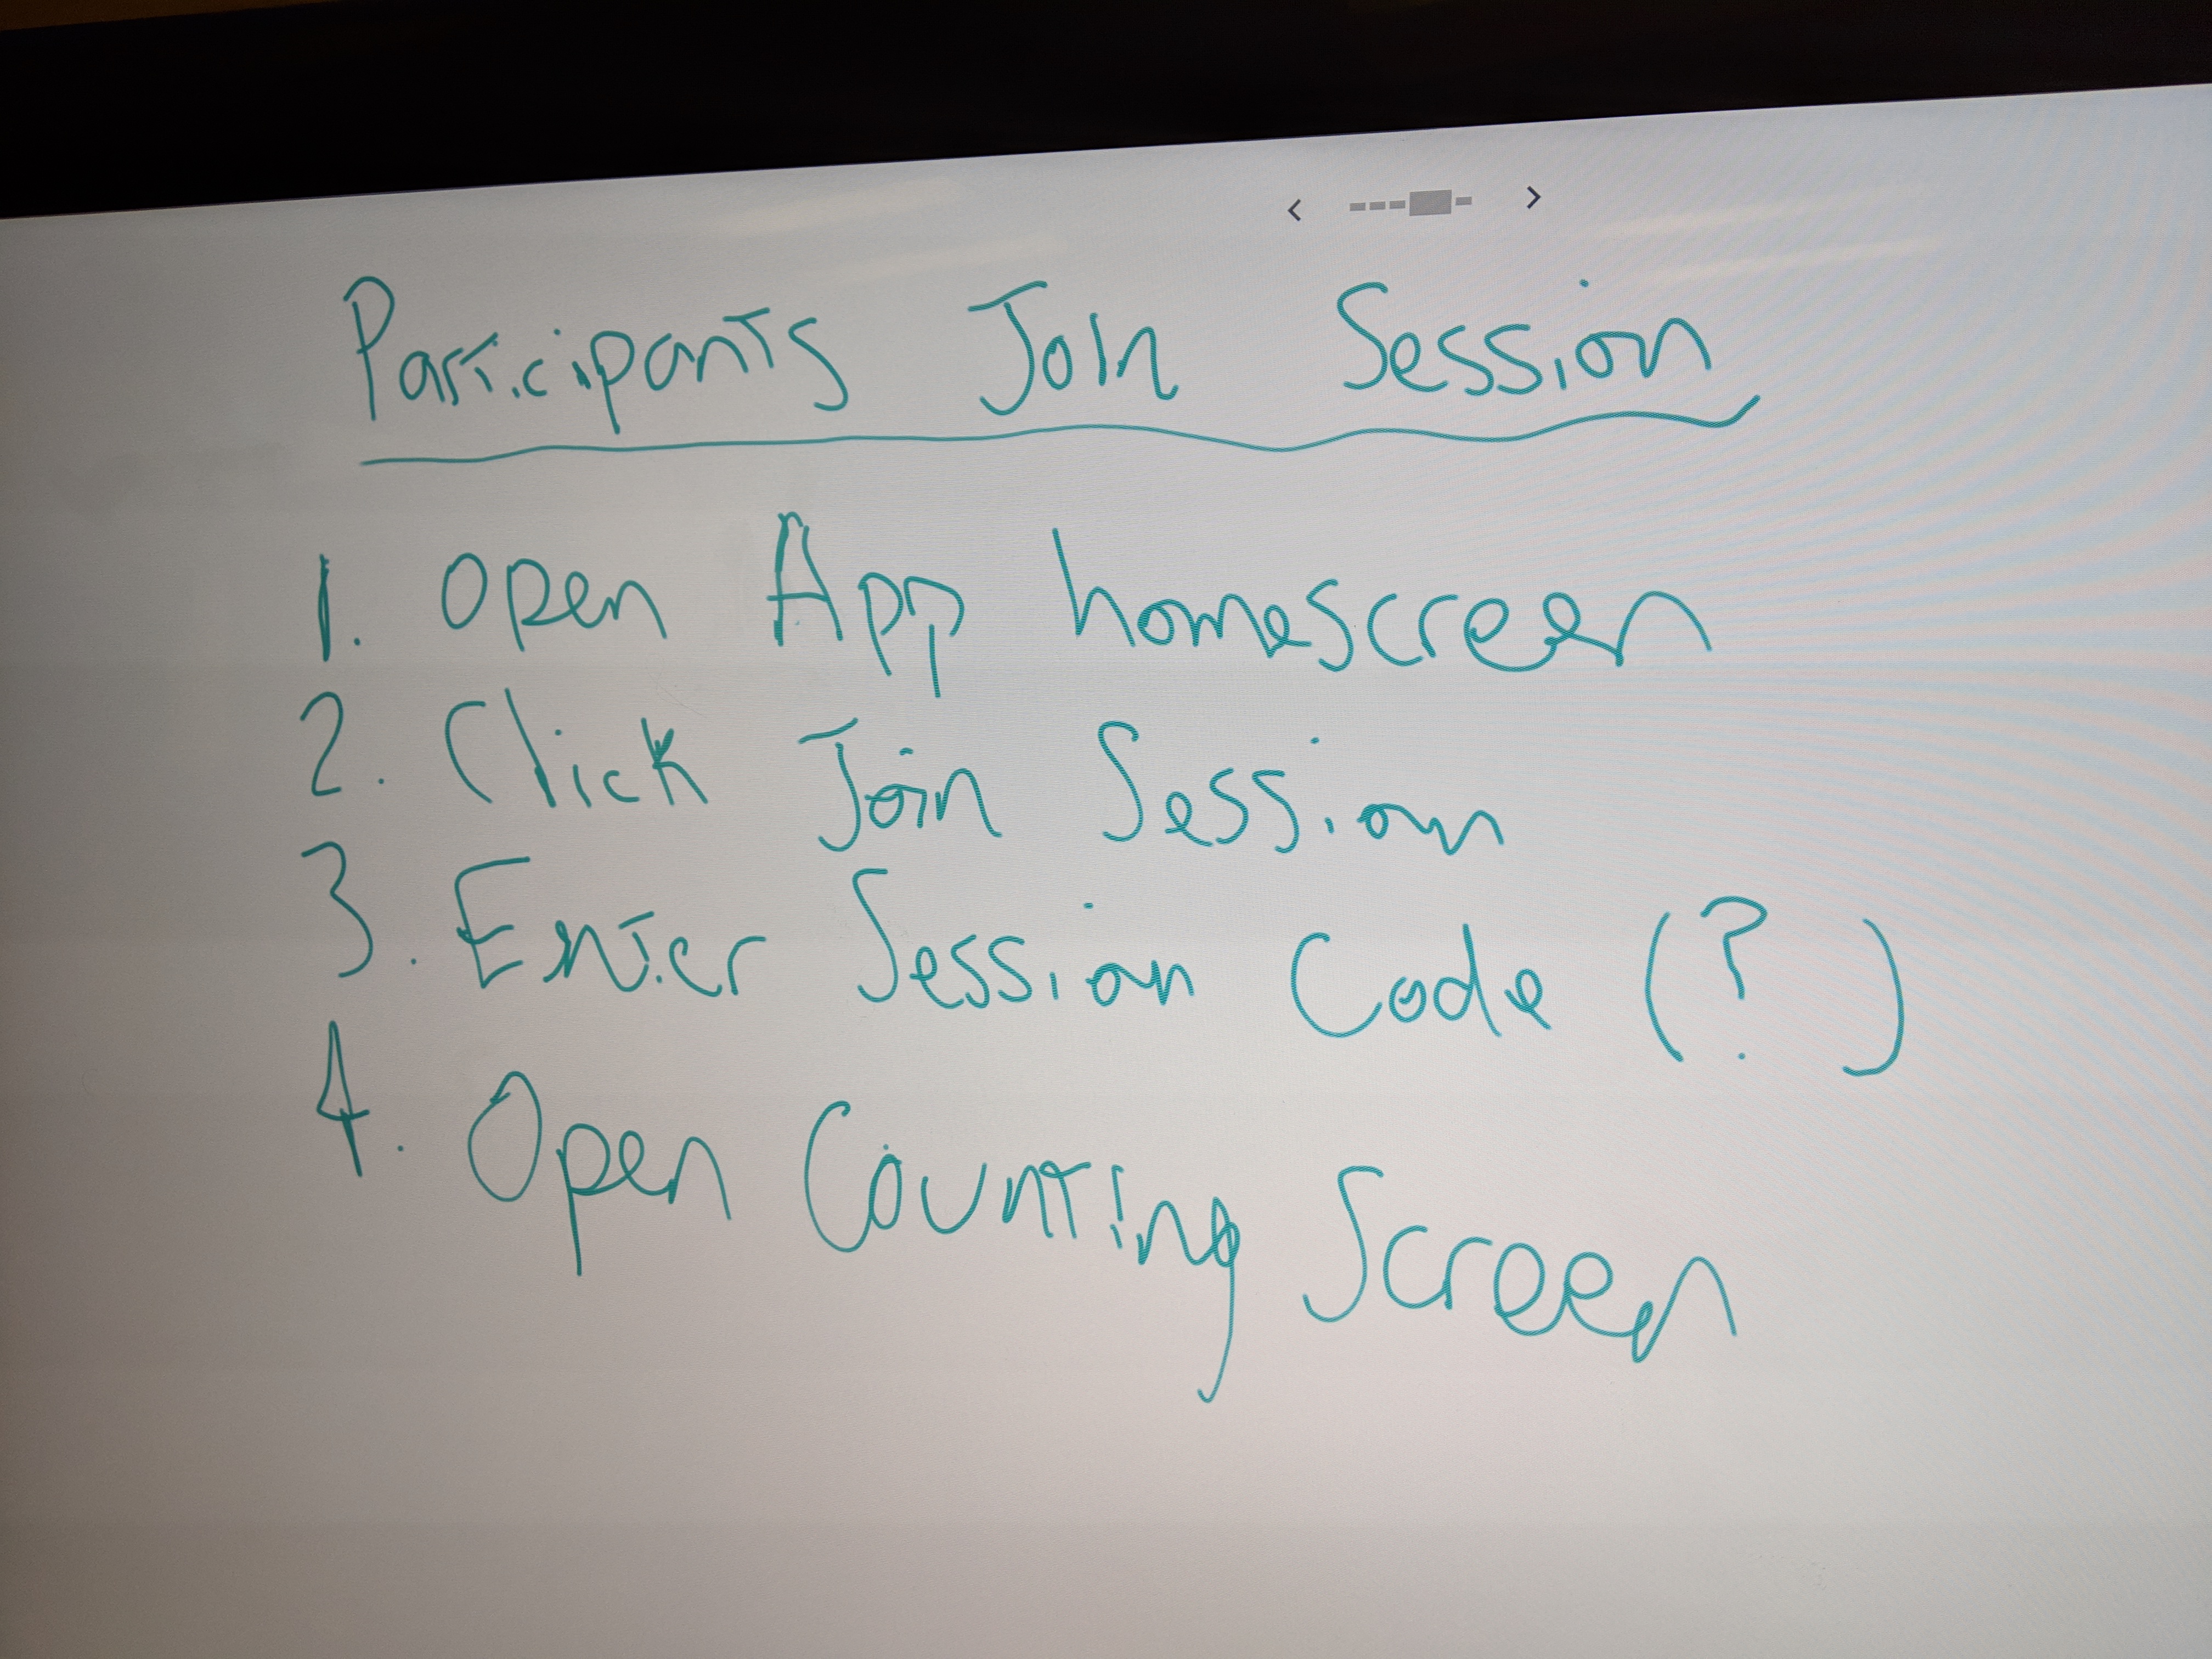 Participants Join Session
1. Open App homescreen
2. Click Join Session
3. Enter Session Code (?)
4. Open Counting Screen